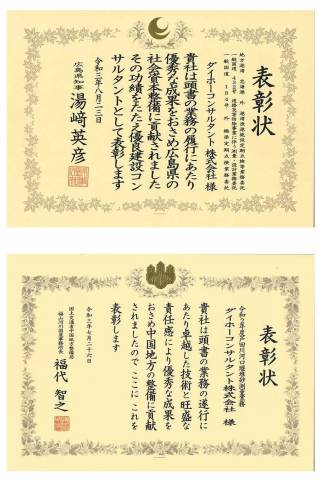 表彰状
ダイホーコンサルタント株式会社 様
貴社は頭書の業務の履行にあたり
優秀な成果をおさめ広島県の
社会資本整備に貢献されました
その功績をたたえ優良建設コン
サルタントとして表彰します
令和三年八月二三日
広島県知事 湯﨑英彦
表彰状
ダイホーコンサルタント株式会社 様
貴社は頭書の業務の遂行に
あたり卓越した技術と旺盛な
責任感により優秀な成果を
おさめ中国地方の整備に貢献
されましたので ここに これを
表彰します
令和三年七月二十六日
国土交通省中国地方整備局
福山河川国道事務所長 福代 智之